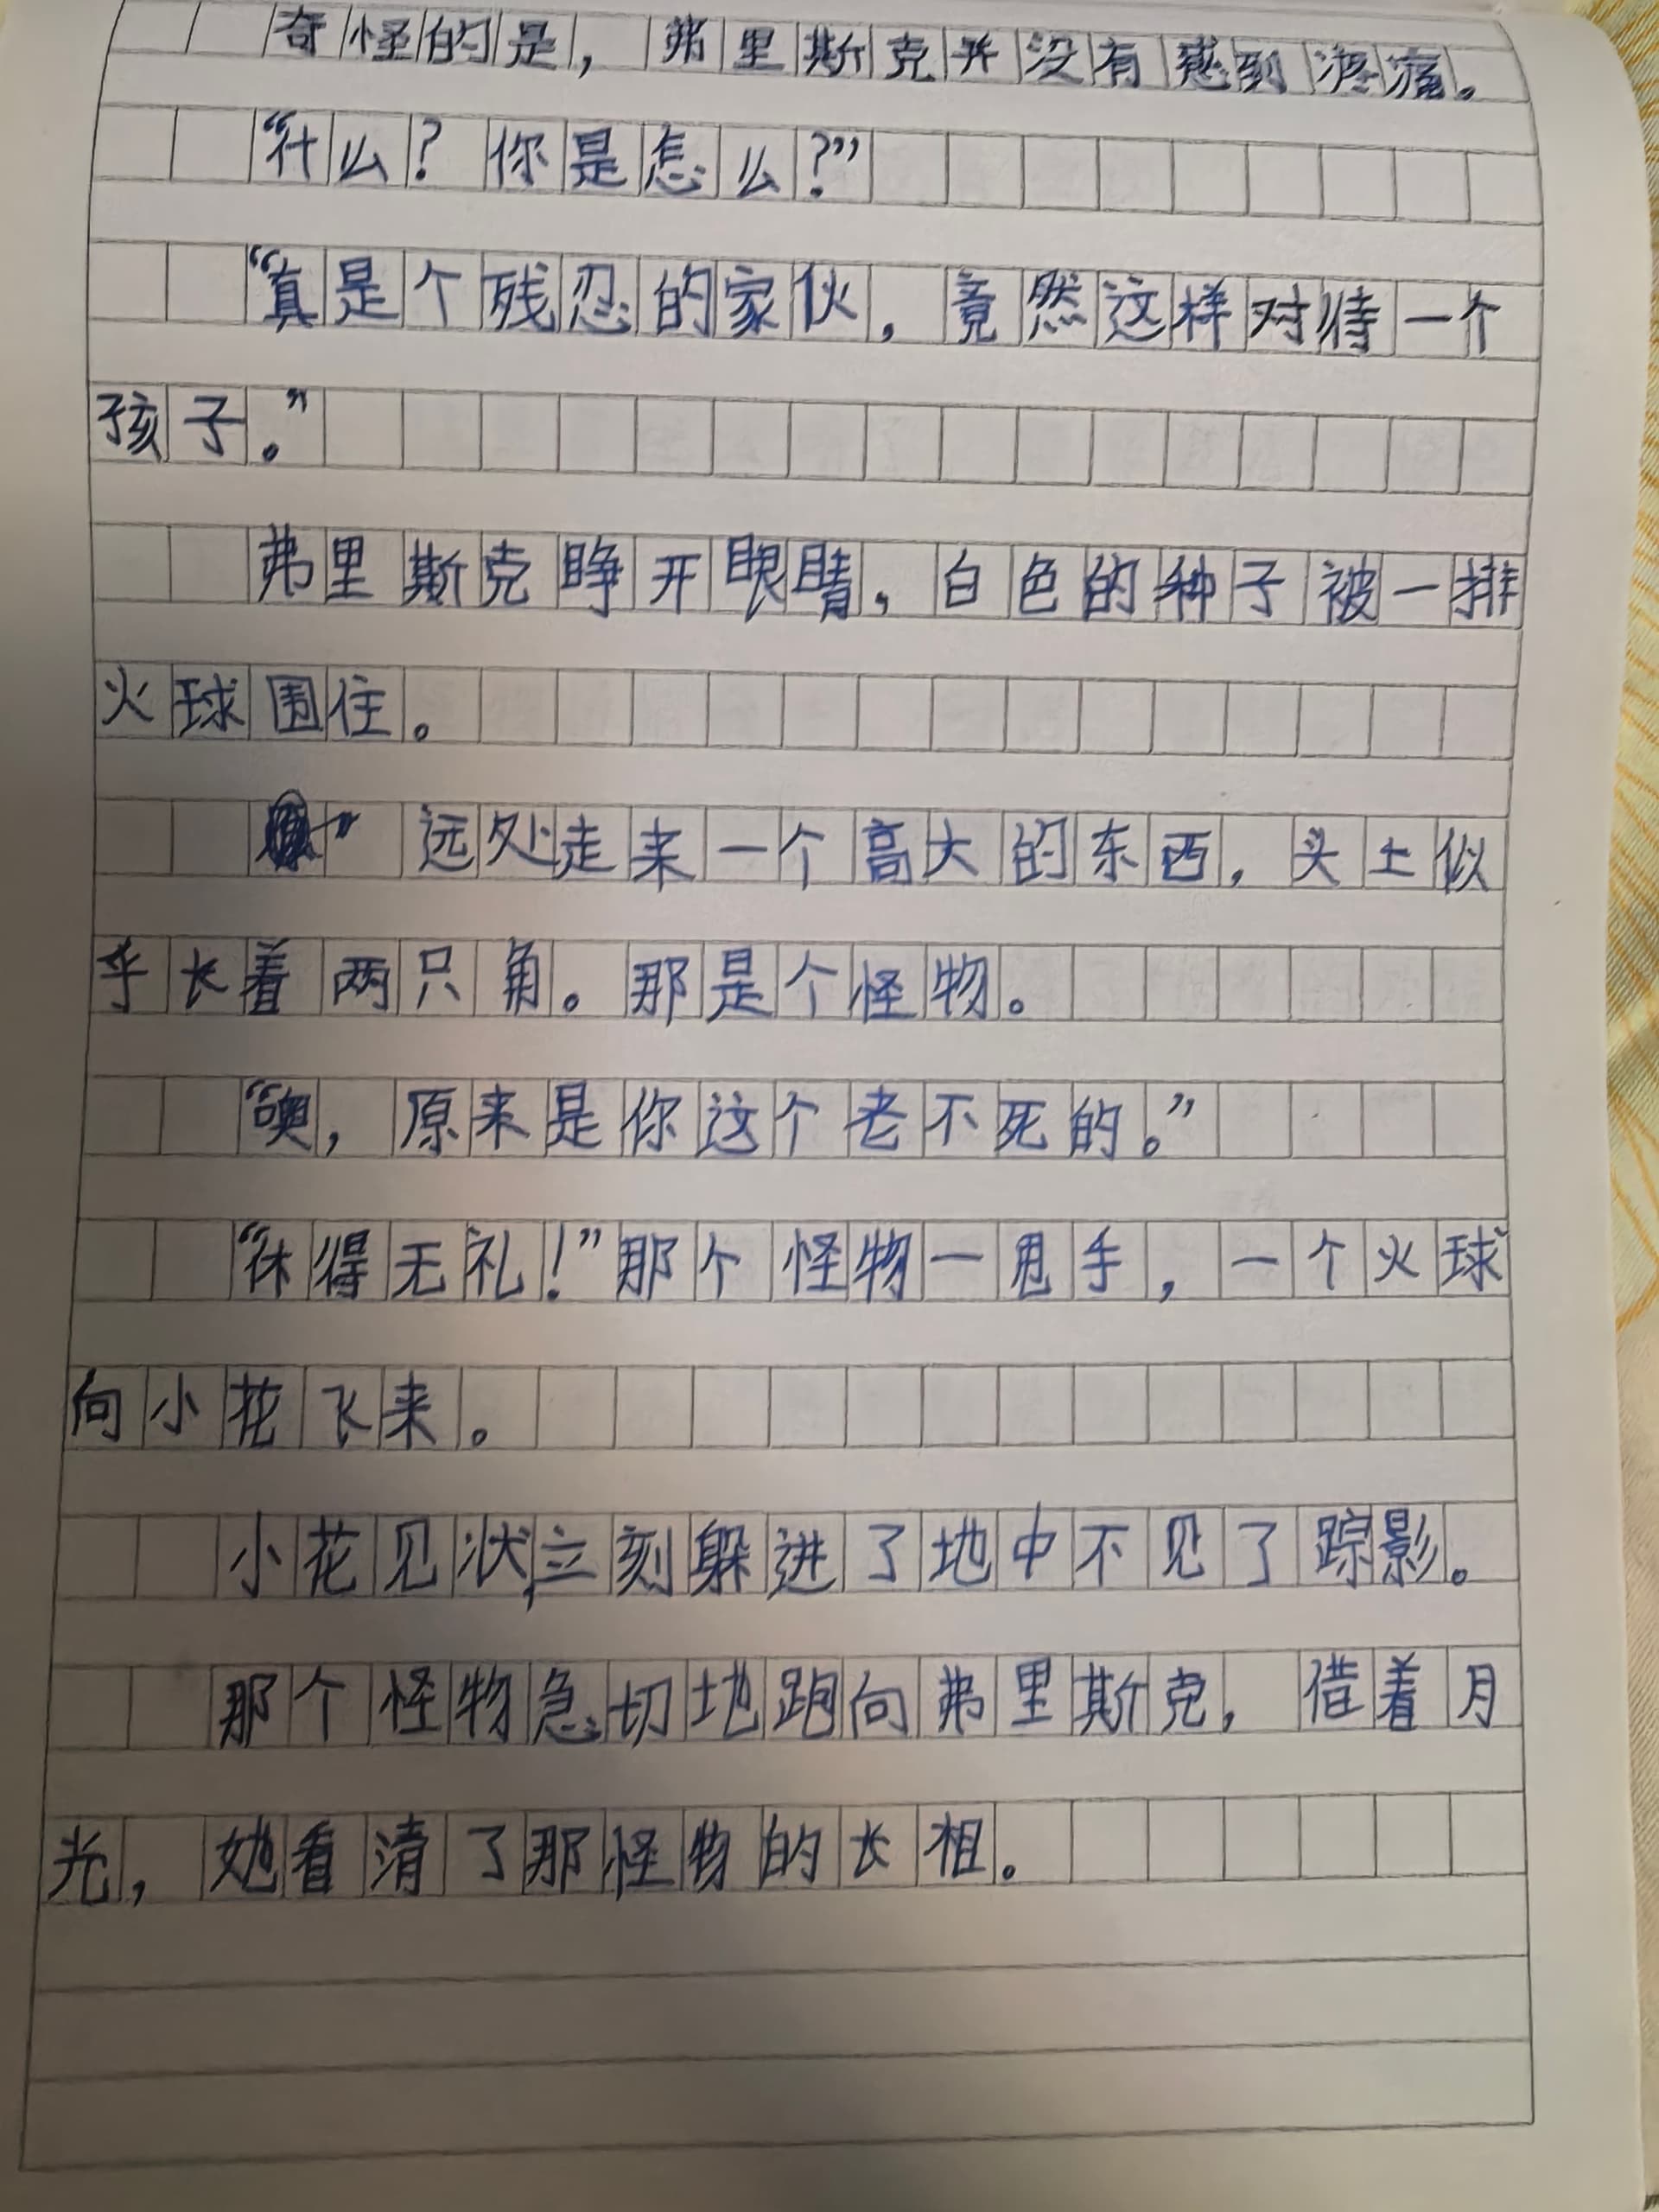 奇怪的是，弗里斯克并没有感到疼痛。
“什么？你是怎么？”
“真是个残忍的家伙，竟然这样对待一个
孩子。”
弗里斯克睁开眼睛，白色的种子被一排
火球围住。
远处走来一个高大的东西，头上似
乎长着两只角。那是个怪物。
“噢，原来是你这个老不死的。”
“休得无礼！”那个怪物一甩手，一个火球
向小花飞来。
小花见状，立刻躲进了地中不见了踪影。
那个怪物急切地跑向弗里斯克，借着月
光，她看清了那怪物的长相。